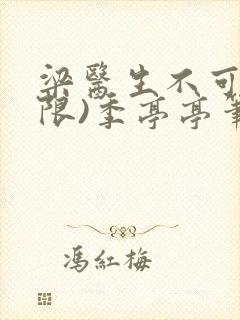 梁醫生不可
限)季亭亭筆
馮紅梅